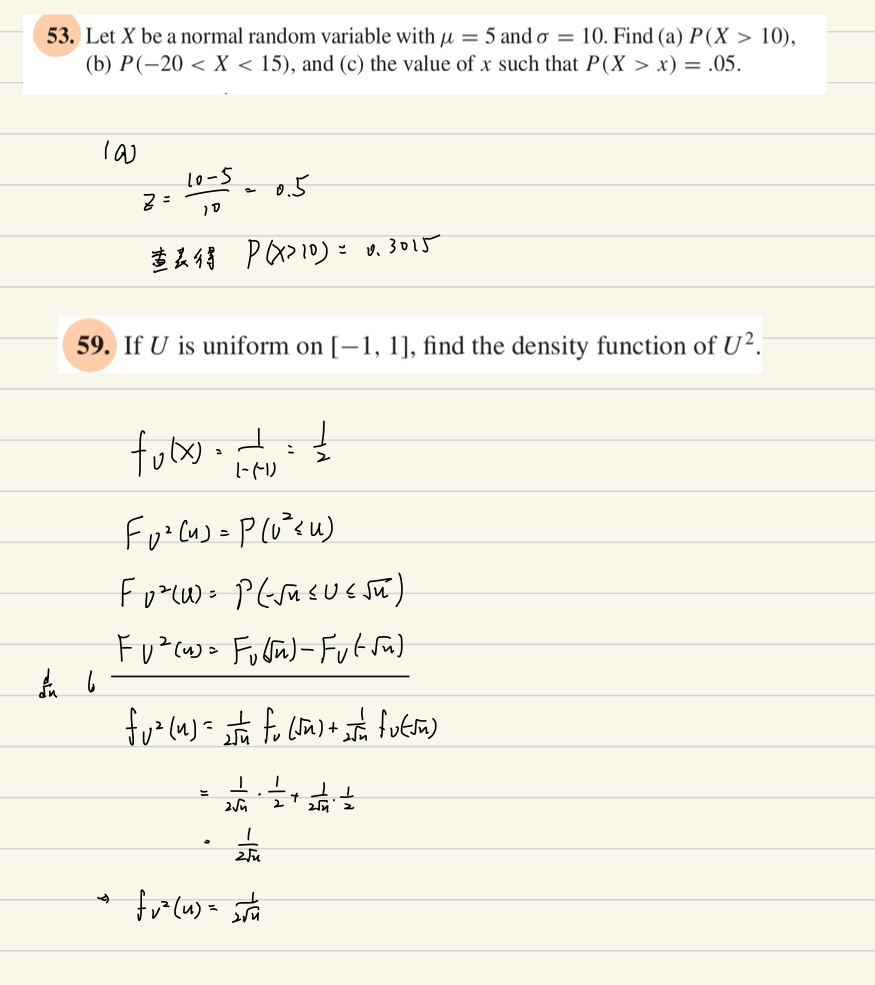 53. Let X be a normal random variable with μ = 5 and σ = 10. Find (a) P(X > 10),
(b) P(−20 < X < 15), and (c) the value of x such that P(X > x) = .05.
(a)
z = (10-5)/10 = 0.5
查表得 P(X>10) = 0.3015
59. If U is uniform on [−1, 1], find the density function of U².
f_U(x) = 1/(1-(-1)) = 1/2
F_U²(u) = P(U² ≤ u)
F_U²(u) = P(-√u ≤ U ≤ √u)
F_U²(u) = F_U(√u) - F_U(-√u)
f_U²(u) = 1/(2√u) f_U(√u) + 1/(2√u) f_U(-√u)
= 1/(2√u) · 1/2 + 1/(2√u) · 1/2
= 1/(2√u)
→ f_U²(u) = 1/(2√u)